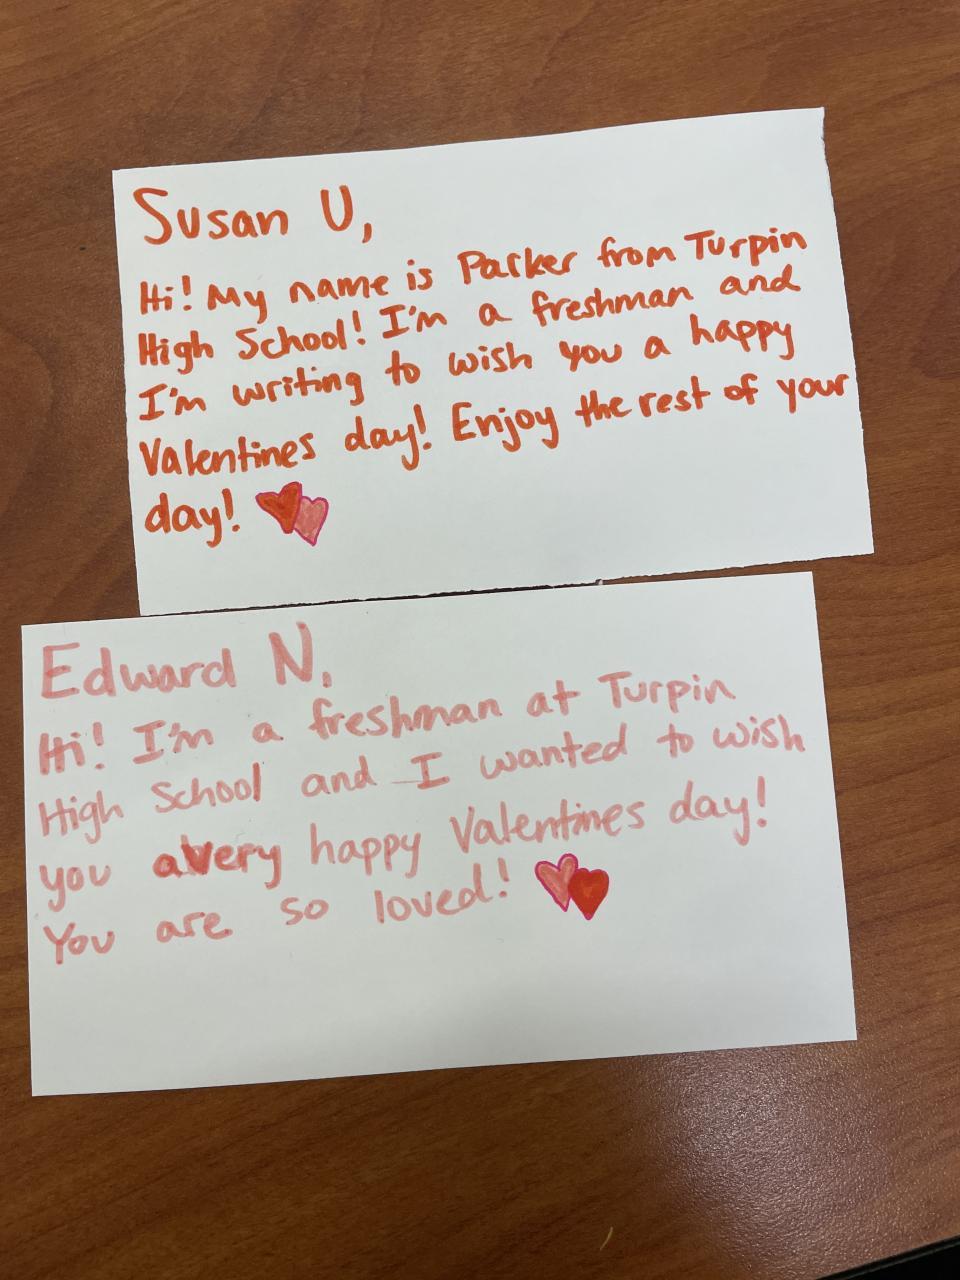 Susan U,
Hi! My name is Parker from Turpin
High School! I'm a freshman and
I'm writing to wish you a happy
Valentines day! Enjoy the rest of your
day!
Edward N,
Hi! I'm a freshman at Turpin
High School and I wanted to wish
you a very happy Valentines day!
You are so loved!